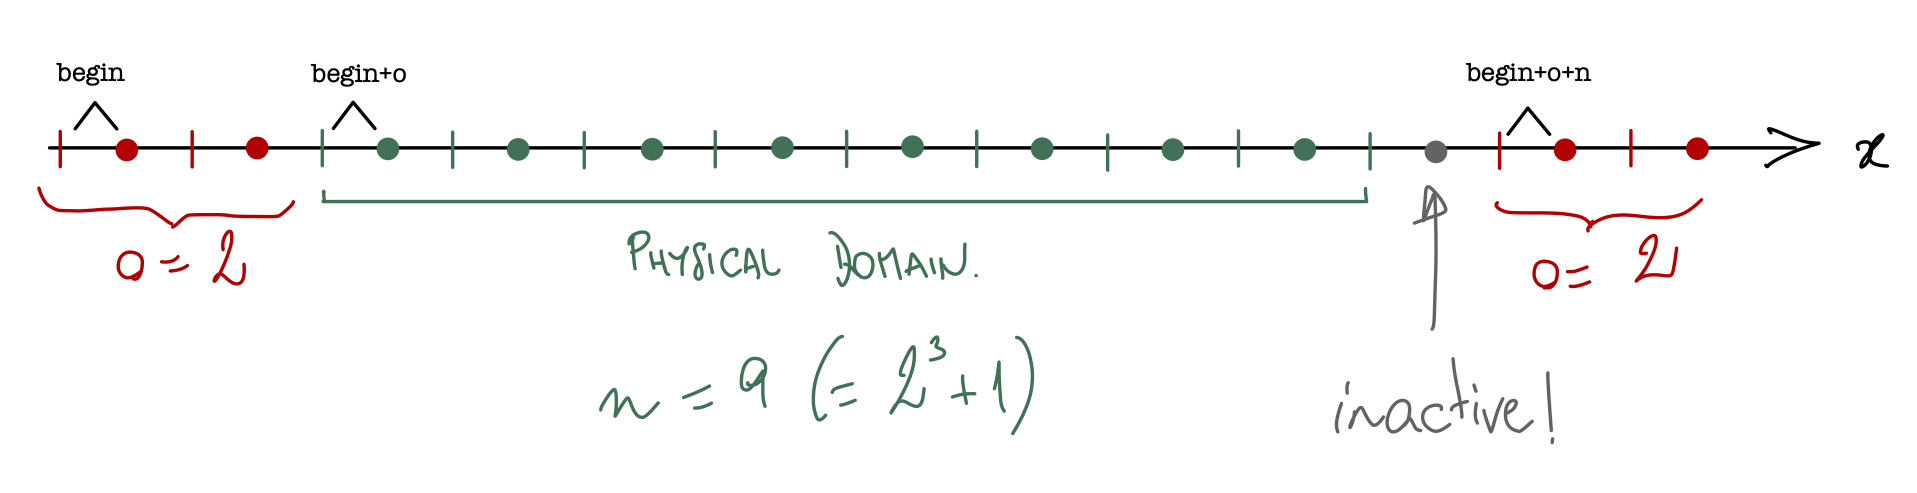 begin
begin+o
begin+o+n
x
o = 2
PHYSICAL DOMAIN.
o = 2
n = 9 (= 2³ + 1)
inactive!